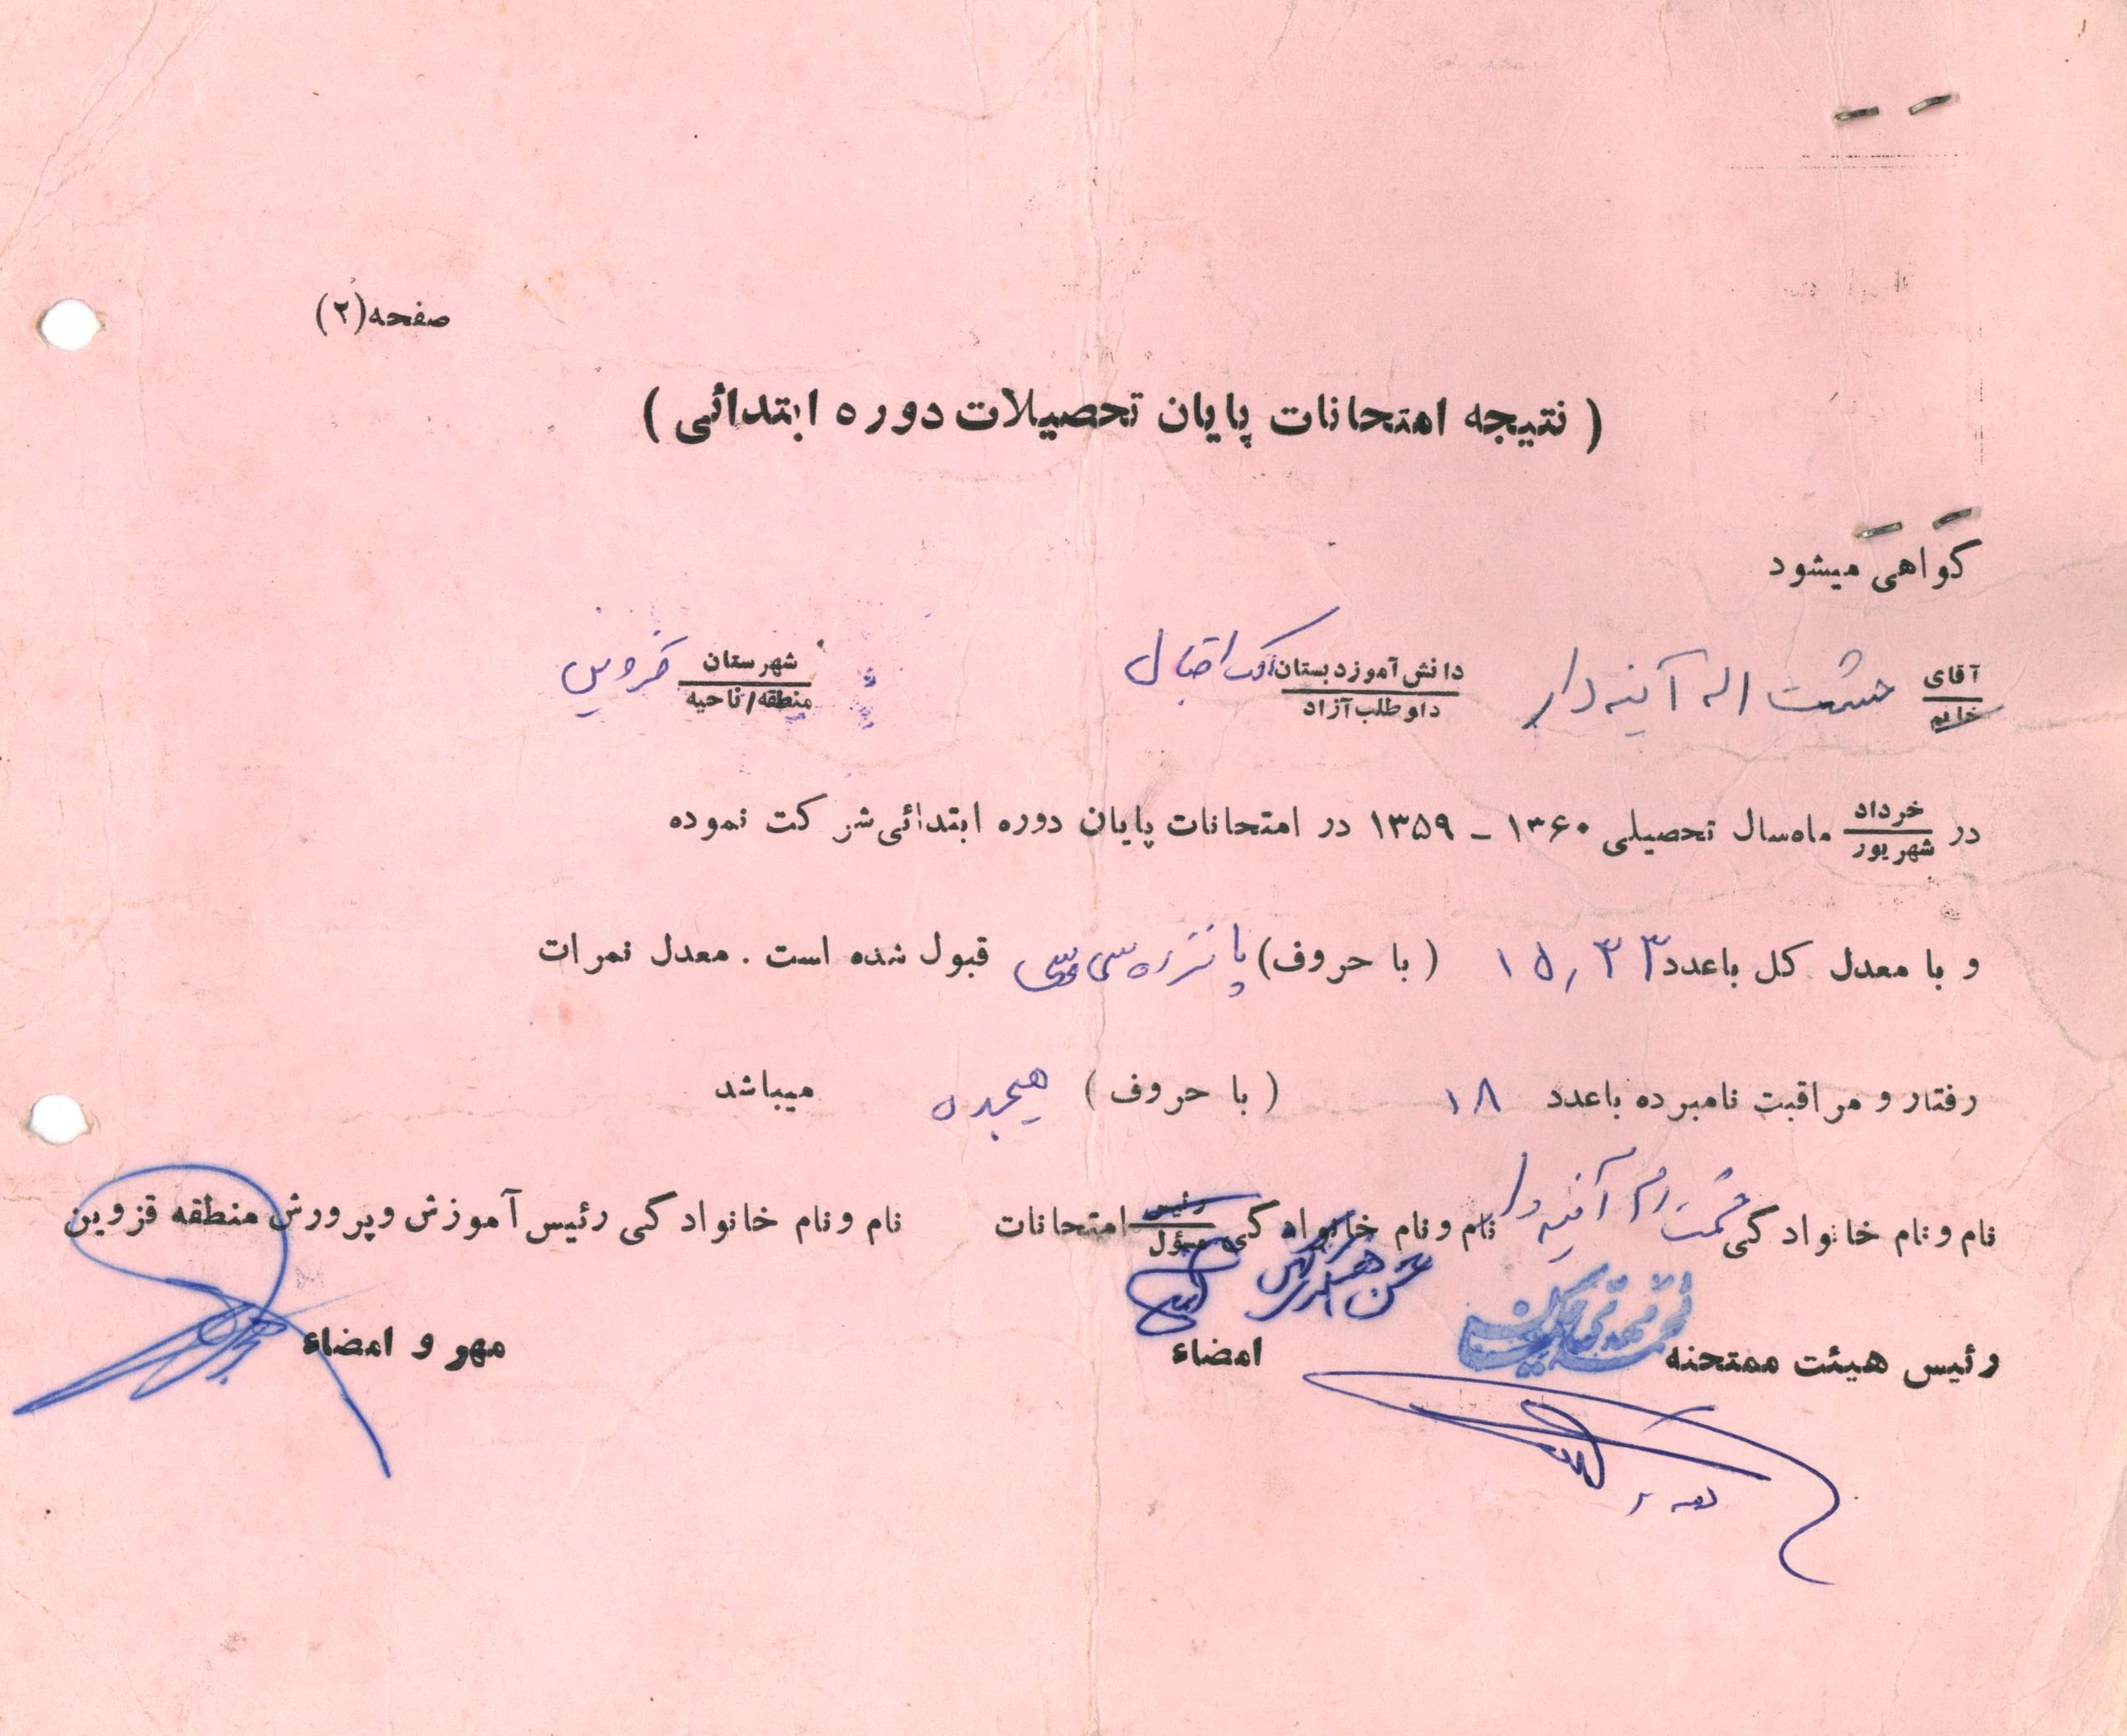 صفحه(۲)
( نتیجه امتحانات پایان تحصیلات دوره ابتدائی )
گواهی میشود
آقای خانم حشمت اله آینه دار دانش آموز دبستان داوطلب آزاد اقبال شهرستان منطقه/ناحیه قزوین
در خرداد شهریور ماه سال تحصیلی ۱۳۶۰ - ۱۳۵۹ در امتحانات پایان دوره ابتدائی شرکت نموده
و با معدل کل باعدد ۱۵٫۳۳ (با حروف) پانزده سی وسی قبول شده است . معدل نمرات
رفتار و مراقبت نامبرده باعدد ۱۸ (با حروف) هیجده میباشد
نام ونام خانوادگی آینه دار نام ونام خانوادگی رئیس مسؤل امتحانات نام ونام خانوادگی رئیس آموزش وپرورش منطقه قزوین
رئیس هیئت ممتحنه امضاء مهر و امضاء